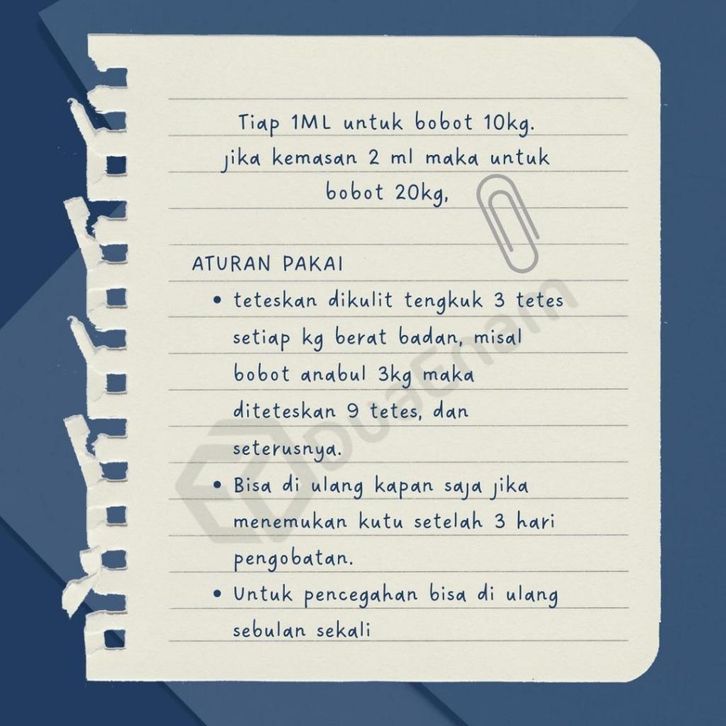 Tiap 1ML untuk bobot 10kg.
jika kemasan 2 ml maka untuk
bobot 20kg,
ATURAN PAKAI
• teteskan dikulit tengkuk 3 tetes
setiap kg berat badan, misal
bobot anabul 3kg maka
diteteskan 9 tetes, dan
seterusnya.
• Bisa di ulang kapan saja jika
menemukan kutu setelah 3 hari
pengobatan.
• Untuk pencegahan bisa di ulang
sebulan sekali
DuaEnam